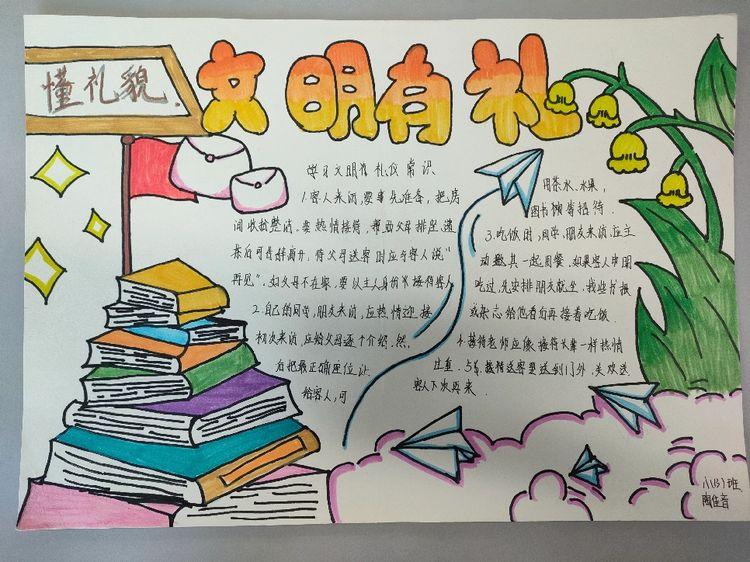 懂礼貌
文明有礼
学习文明有礼仪常识
1.客人来访,要事先准备,把房
间收拾整洁.要热情接待,帮助父母排座,递
茶后可告辞离开,待父母送客时应与客人说"
再见".如父母不在家,要以主人身份接待客人
2.自己的同学,朋友来访,应热情迎接
初次来访,应给父母逐个介绍.然
后把最正确座位让
给客人,可
用茶水、水果,
图书 等招待.
3.吃饭时,同学,朋友来访,应主
动邀其一起用餐.如果客人申明
吃过,先安排朋友就坐,找些书报
或杂志给他看自再接着吃饭
4.接待老师应像接待长辈一样热情
庄重. 接待送客要送到门外,关欢送
客人下次再来.
八(3)班
陶佳音